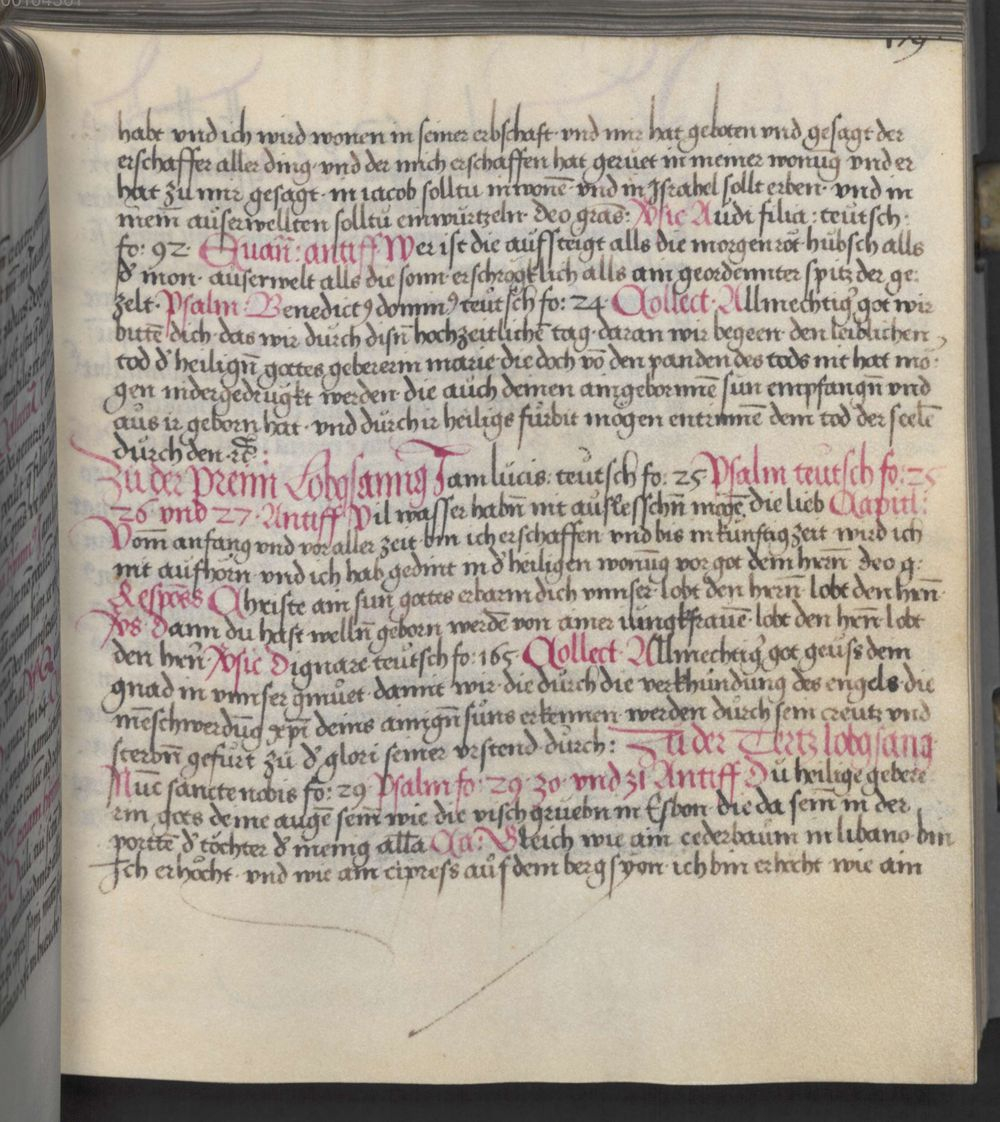 179
habt vnd ich wird wonen in seiner erbschaft· vnd mir hat geboten vnd gesagt der
erschaffer aller ding· vnd der mich erschaffen hat geruet in meiner wonūg vnd er
hat zu mir gesagt· in iacob solltu inwonē· vnd in Israhel sollt erben· vnd in
meīn auserwellten solltu einwurtzeln· deo graē: V̉sic Audi filia: teutsch·
fo: 92· Euan̄: antiff Wer ist die aufsteigt alls die morgenröt· hubsch alls
d' mon· auserwelt alls die sonn· erschrögklich alls ain geordennter spitz der ge:
zelt· Psalm· Benedictꝰ dominꝰ teutsch fo: 24 Collect· Allmechtigᷣ got wir
bitē· dich· das wir durch disn̄ hochzeitlichē tag· daran wir begeen· den leiblichen
tod d' heilign̄ gottes gebererin marie· die doch vō den panden des tods nit hat mö·
gen nidergedrugkt werden· die auch deinen aingebornnē sun empfangn̄ vnd
aus ir geborn hat· vnd durch ir heiligs furbit mögen entrinnē dem tod der seelē
durch den· rc̄:
Zu der preim Lobgsanng Iam lucis· teutsch fo: 25 Psalm teutsch fo: 25
26 vnd 27· Antiff Vil wasser habn̄ nit auslesschn̄ mögē die lieb Capitl:
Vom anfanng vnd vor aller zeit bin ich erschaffen vnd bis in kunftig zeit wird ich
nit aufhörn· vnd ich hab gedint in d' heiligen wonūg vor got dem hrrn̄ deo g:
Respons Christe ain sun gottes erbarm dich vnnser· lobt den hrrn̄· lobt den hrn̄·
V̉s· Dann du hast welln̄ geborn werdē von ainer iungkfrauē· lobt den hrn̄ lobt
den hrn̄ V̉sic Dignare teutsch fo: 165 Collect· Allmechtigᷣ got geuss dein
gnad in vnnser gmuet· damit wir· die durch die verkhundung des engels· die
mēschwerdūg xp̄i deins ainign̄ suns erkennen· werden durch sein creutz vnd
sterbn̄ gefurt zu d' glori seiner vrstend· durch: Zu der Tertz lobgsang
Nūc sancte nobis fo: 29 Psalm fo: 29 30 vnd 31 Antiff Du heilige gebere
rin gots deine augē seīn wie die vischgruebn̄ in Esbon· die da seīn in der
porttē d' töchter d' menig all̄a Ca: Gleich wie ain cederbaum in libano bin
Ich erhöcht· vnd wie ain cipress auf dem berg syon· ich bin erhöcht wie ain